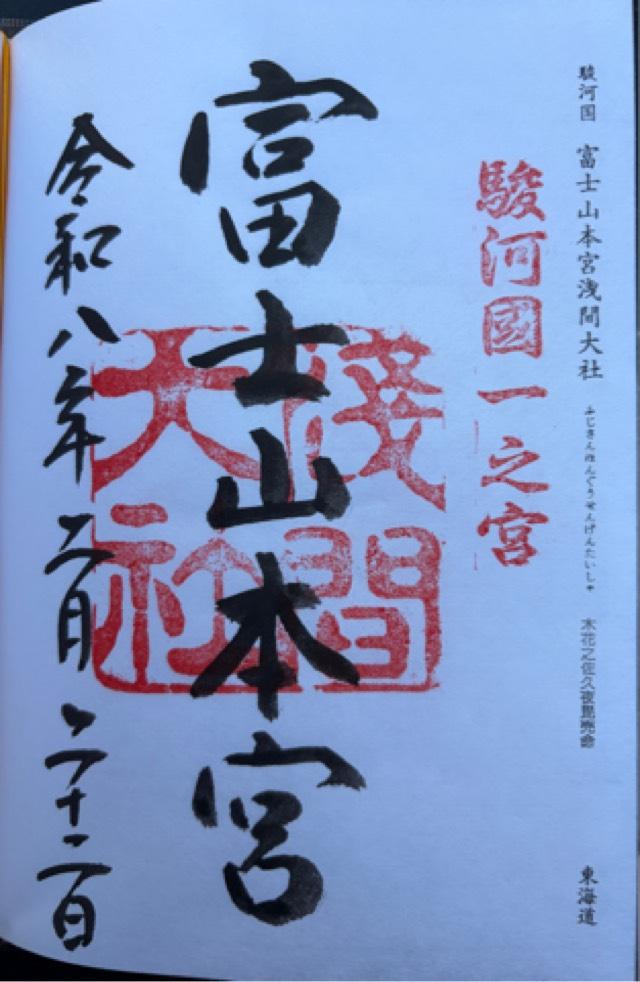 駿河国 富士山本宮浅間大社 ふじさんほんぐうせんげんたいしゃ 木花之佐久夜毘売命 東海道
駿河國一之宮
富士山本宮
淺間大社
令和八年二月二十二日